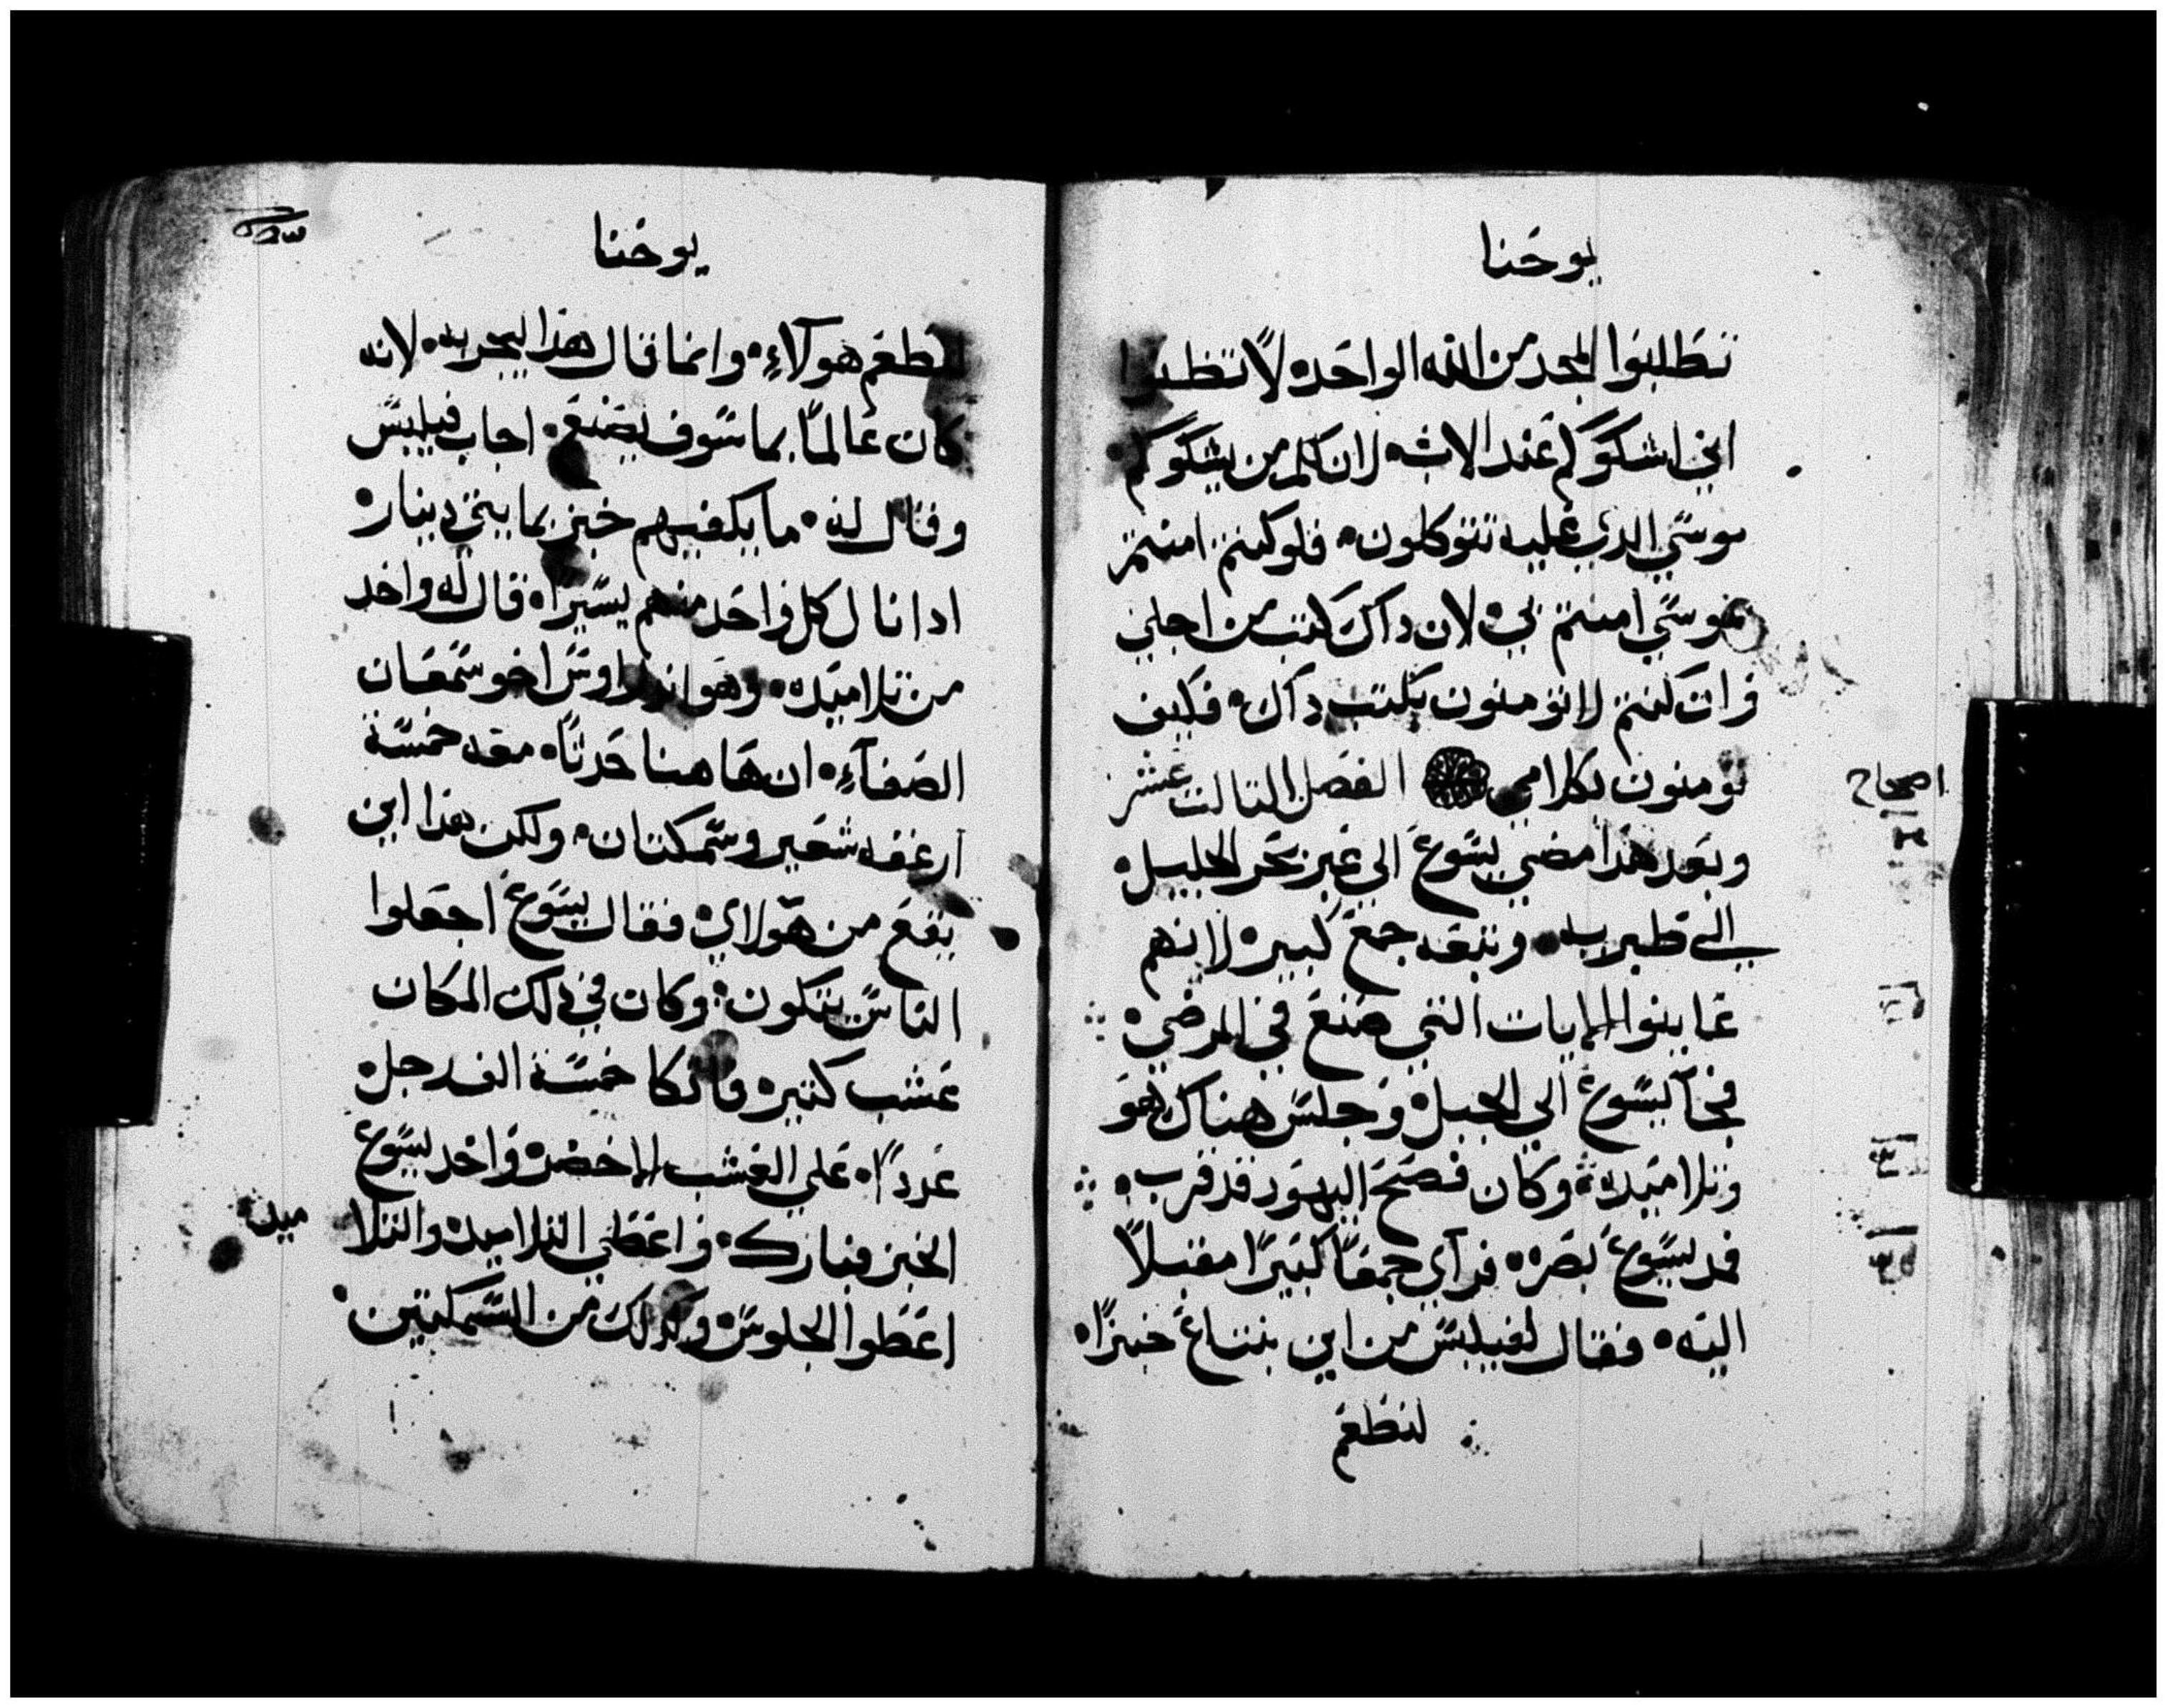 يوحنا
تطلبوا المجد من الله الواحد ۰ لا تظنوا
اني اشكوكم عند الاب ۰ لان لكم من يشكوكم
موسي الدي عليه تتوكلون ۰ فلو كنتم امنتم
بموسي امنتم بي ۰ لان داك كتب من اجلي
وان كنتم لا تومنون بكتب داك ۰ فكيف
تومنون بكلامي الفصل التالت عشر
اصحاح
وبعد هذا مضي يسوع الي عبر بحر الجليل ۰
الي طبريه ۰ وتبعه جمع كبير ۰ لانهم
عاينوا الايات التي صنع في المرضي ۰
فجآ يسوع الي الجبل ۰ وجلس هناك هو
وتلاميده ۰ وكان فصح اليهود قد قرب ۰
فمد يسوع بصره ۰ فرآي جمعًا كتيرًا مقبلًا
اليه ۰ فقال لفيلبس من اين نبتاع خبزًا ۰
لنطعم
يوحنا
لنطعم هولآءِ ۰ وانما قال هذا ليجربه ۰ لانه
كان عالمًا بما سوف يصنع ۰ اجاب فيلبس
وقال له ۰ ما يكفيهم خبز بمايتي دينار ۰
ادا نال كل واحد منهم يسيرًا ۰ قال له واحد
من تلاميده ۰ وهو اندراوس اخو سمعان
الصفآءِ ۰ ان هاهنا حدتًا ۰ معه خمسة
ارغفه شعير وسمكتان ۰ ولكن هذا اين
يقع من هولاي ۰ فقال يسوع اجعلوا
الناس يتكون ۰ وكان في دلك المكان
عشب كتير ۰ فاتكا خمسة الف رجل ۰
عددًا ۰ علي العشب الاخضر ۰ واخد يسوع
الخبز فبارك ۰ واعطي التلاميد ۰ والتلا
ميد
اعطوا الجلوس ۰ وكدلك من السمكتين ۰